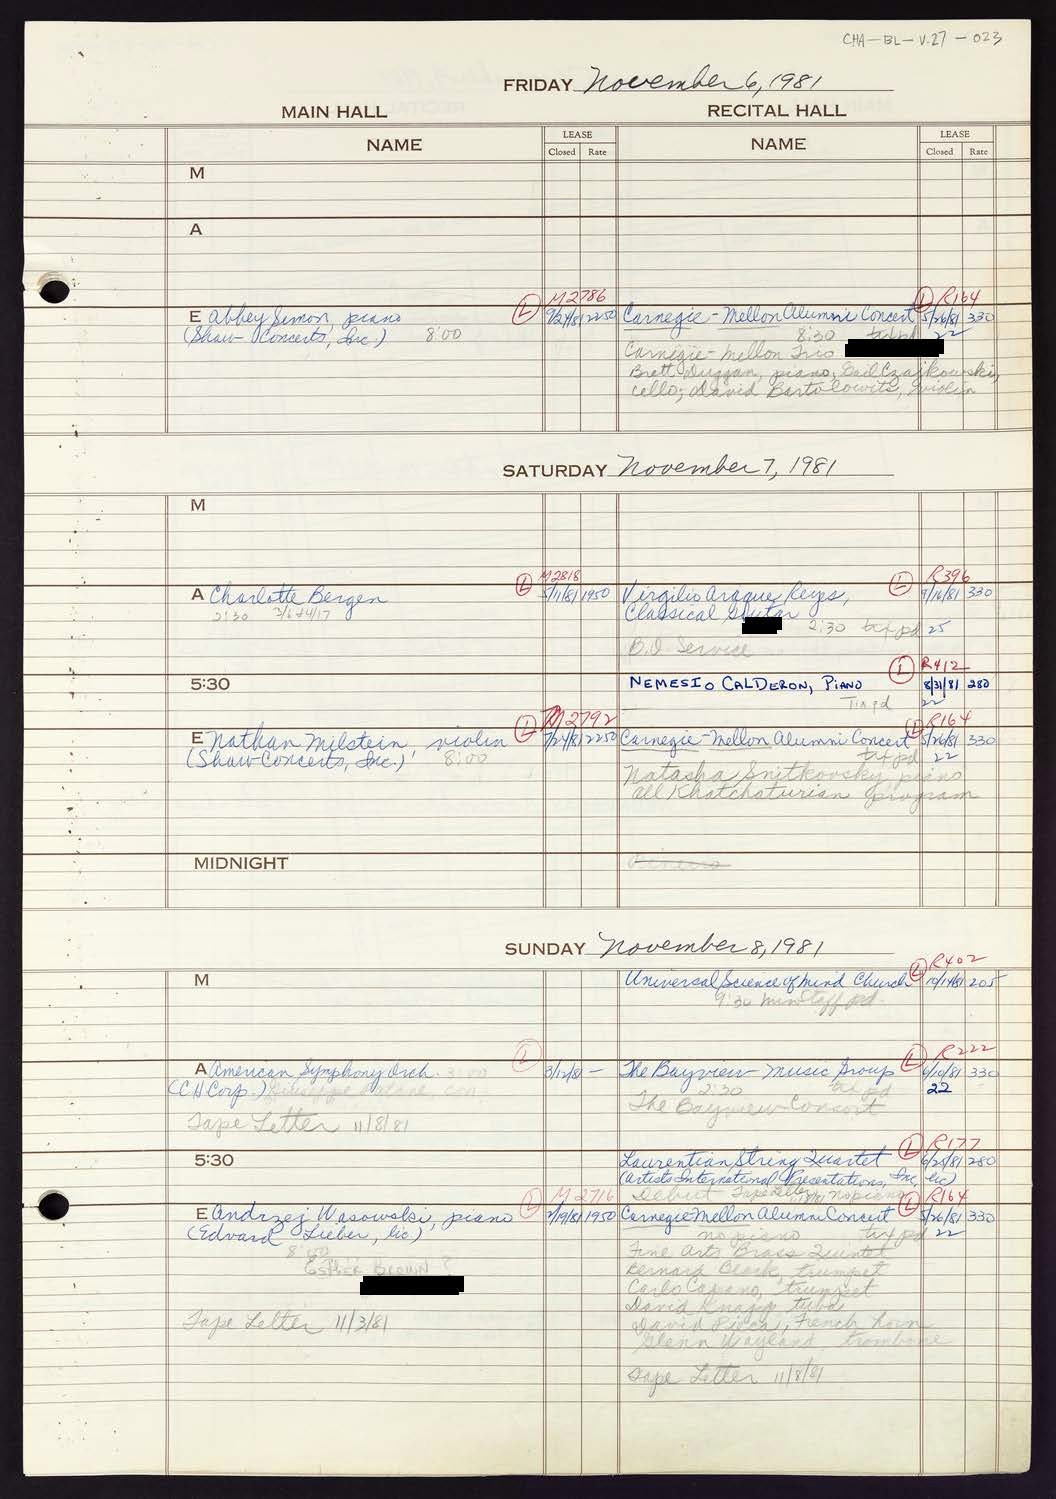 CHA-BL-V.27-023
FRIDAY November 6, 1981
MAIN HALL RECITAL HALL
NAME LEASE NAME LEASE
Closed Rate Closed Rate
M
A
M2786 R164
E Abbey Simon, piano L 2250 Carnegie-Mellon Alumni Concert L 5/26/81 330
(Shaw Concerts, Inc.) 8:00 8:30 txt pd 22
Carnegie-Mellon Trio
Brett Duggan, piano, Gail Czajkowski,
cello; David Bartolowits, violin
SATURDAY November 7, 1981
M
M2818 R396
A Charlotte Bergen L 5/11/81 1950 Virgilio Araque Reyes, L 9/16/81 330
2:30 Classical Guitar
2:30 txt pd 25
B.O. Service
R412
5:30 NEMESIO CALDERON, PIANO L 8/31/81 280
pd 22
M2792 R164
E Nathan Milstein, violin L 7/24/81 2250 Carnegie-Mellon Alumni Concert L 5/26/81 330
(Shaw Concerts, Inc.) 8:00 txt pd 22
Natasha Snitkovsky piano
all Khatchaturian program
MIDNIGHT
SUNDAY November 8, 1981
R402
M Universal Science of Mind Church L 10/14/81 205
9:30 pd.
R222
A American Symphony Orch. 3:00 L 3/12/81 - The Bayview Music Group L 330
(CH Corp.) 2:30 txt pd 22
The Bayview Consort
Tape Letter 11/8/81
R177
5:30 Laurentian String Quartet L 6/25/81 280
(Artists International Presentations, Inc, lic)
Debut Tape Letter no piano
M2716 R164
E Andrzej Wasowski, piano L 2/19/81 1950 Carnegie Mellon Alumni Concert L 5/26/81 330
(Edvard Lieber, lic) no piano txt pd 22
8:00 Fine Arts Brass Quintet
ESTHER BROWN ? Bernard Black, trumpet
Carlo Capano, trumpet
David Knapp tuba
Tape Letter 11/3/81 David Picca, French horn
Glenn Wayland trombone
Tape Letter 11/8/81